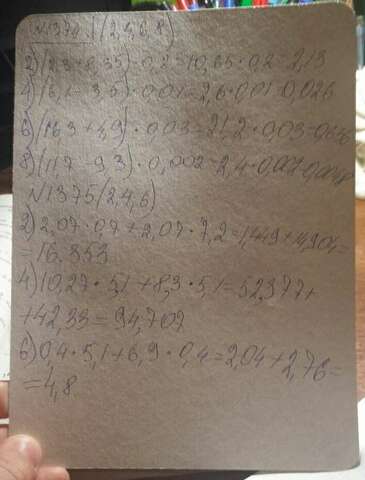 №1374. (2,4,6,8)
2) (2,3+8,35)·0,2=10,65·0,2=2,13
4) (6,1-3,5)·0,01=2,6·0,01=0,026
6) (16,3+4,9)·0,03=21,2·0,03=0,636
8) (11,7-9,3)·0,002=2,4·0,002=0,0048
№1375 (2,4,6)
2) 2,07·0,7+2,07·7,2=1,449+14,904=
=16.353
4) 10,27·5,1+8,3·5,1=52,377+
+42,33=94,707
6) 0,4·5,1+6,9·0,4=2,04+2,76=
=4,8